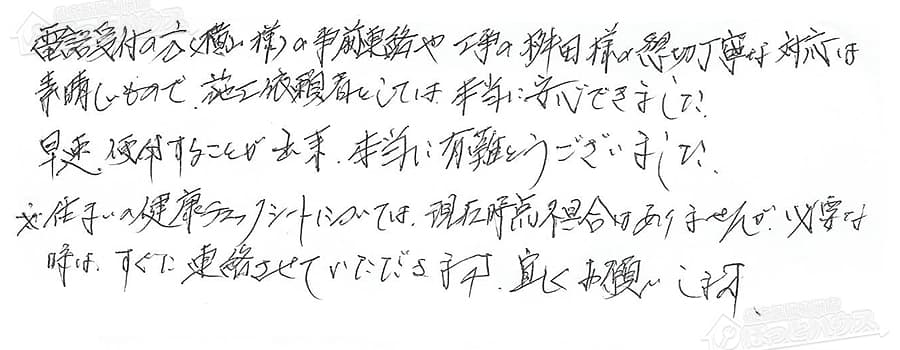 電話受付の方(横山様)の事前連絡や工事の桝田様の懇切丁寧な対応は
素晴しいもので、施工依頼者としては、本当に安心できました。
早速、使用することが出来、本当に有難とうございました。
※住まいの健康チェックシートについては、現在時点不具合はありませんが、必要な
時は、すぐに連絡させていただきます。宜しくお願いします。